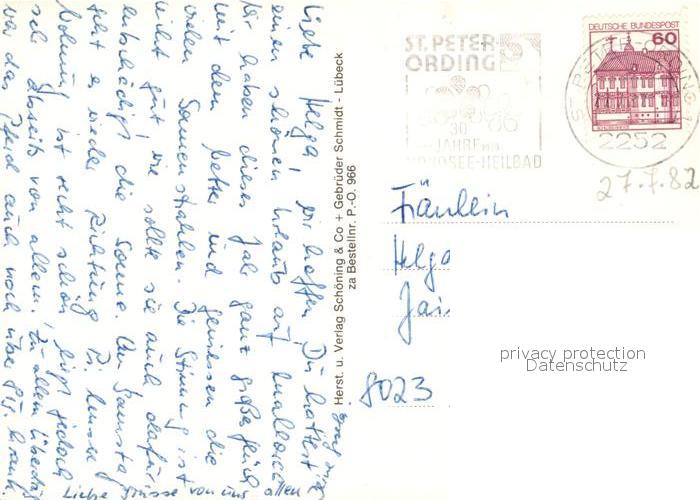 Liebe Helga, wir hoffen, Du hattest
einen schönen Urlaub auf Mallorca.
Wir haben dieses Jahr ganz großes Glück
mit dem Wetter und genießen die
vielen Sonnenstrahlen. Die Stimmung ist
nicht gut, wie sollte sie auch, dafür
entschädigt die Sonne. Am Samstag
geht es wieder Richtung
Wohnung ist recht schön, liegt jedoch
sehr abseits von allem. Zu allem
war das Pferd auch noch über
Liebe Grüsse von uns allen
Herst. u. Verlag Schöning & Co + Gebrüder Schmidt - Lübeck
zu Bestellnr. P.-O. 966
ST. PETER-
ORDING
30
JAHRE
NORDSEE-HEILBAD
DEUTSCHE BUNDESPOST
60
ST. PETER-ORDING 1
2252
27.7.82
Fräulein
Helga
Jai
8023
privacy protection
Datenschutz